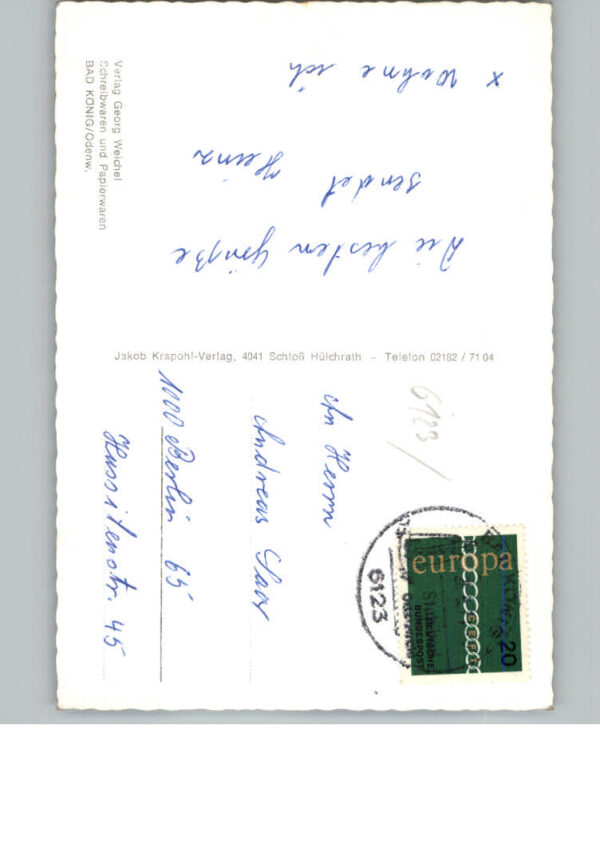 x Wohne ich
Die besten Grüße
sendet Heinz
Verlag Georg Weichel
Schreibwaren und Papierwaren
BAD KÖNIG/Odenw.
Jakob Krapohl-Verlag, 4041 Schloß Hülchrath – Telefon 02182 / 71 04
6123/
An Herrn
Andreas
1000 Berlin 65
Hussitenstr. 45
europa
20
DEUTSCHE
BUNDESPOST
6123